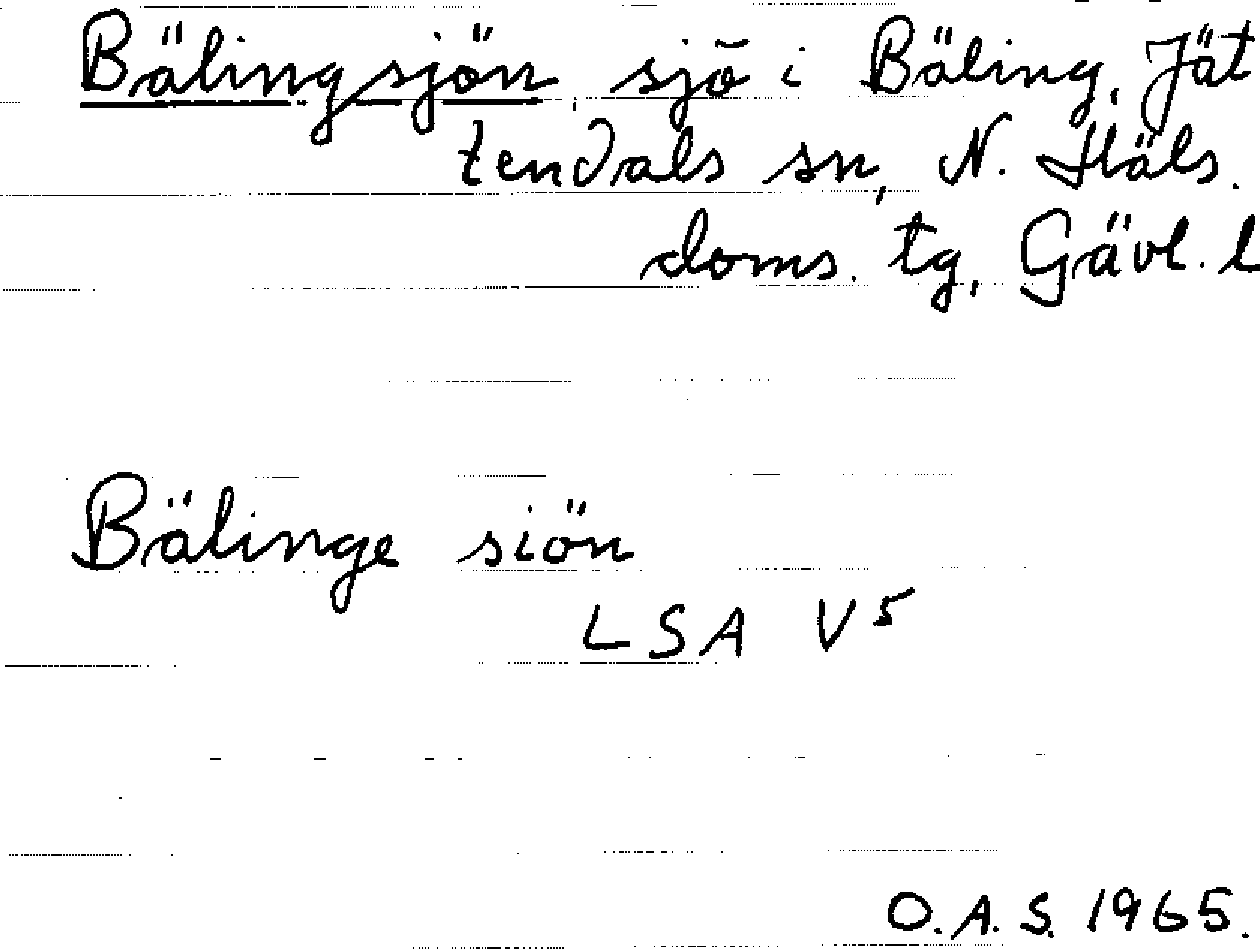 Bälingsjön, sjö i Bäling, Jät
tendals sn, N. Häls.
doms. tg, Gävl. l
Bälinge siön
LSA V5
O.A.S. 1965.